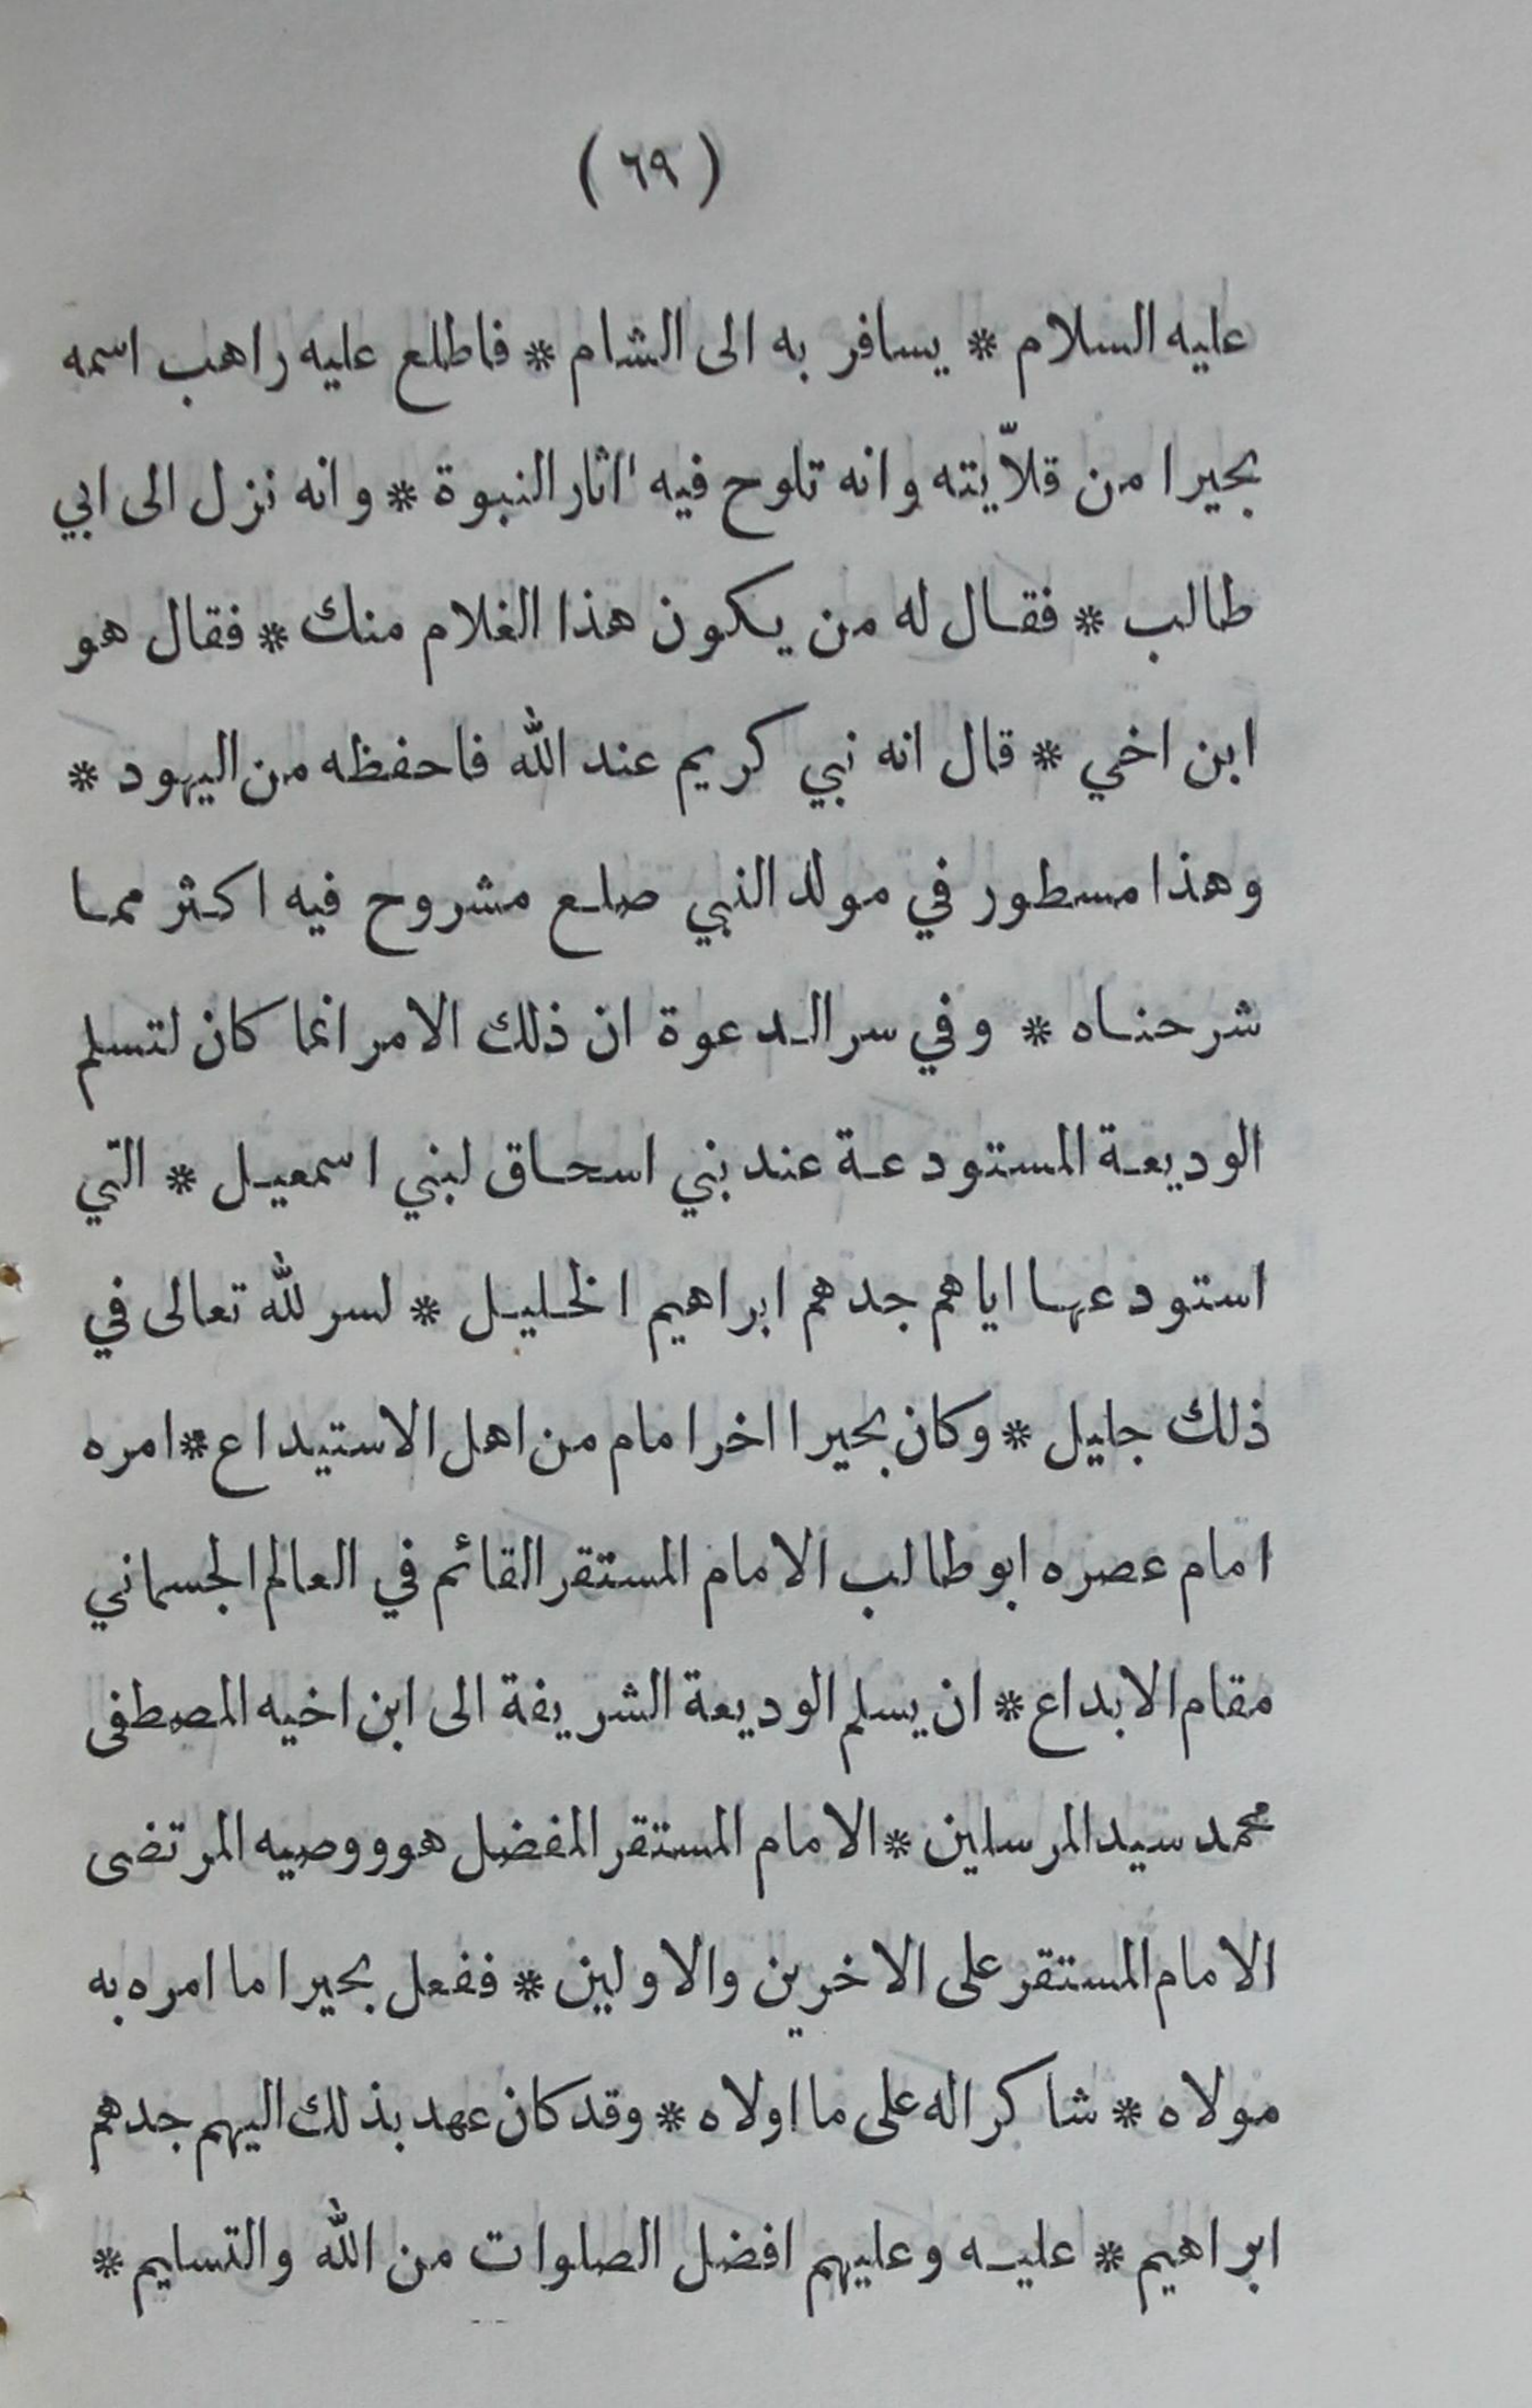 ( ٦٩ )
عليه السلام * يسافر به الى الشام * فاطلع عليه راهب اسمه
بحيرا من قلاّيته وانه تلوح فيه اثار النبوة * وانه نزل الى ابي
طالب * فقال له من يكون هذا الغلام منك * فقال هو
ابن اخي * قال انه نبي كريم عند الله فاحفظه من اليهود *
وهذا مسطور في مولد النبي صلع مشروح فيه اكثر مما
شرحناه * وفي سر الدعوة ان ذلك الامر انما كان لتسلم
الوديعة المستودعة عند بني اسحاق لبني اسمعيل * التي
استودعها اياهم جدهم ابراهيم الخليل * لسر لله تعالى في
ذلك جليل * وكان بحيرا اخر امام من اهل الاستيداع * امره
امام عصره ابو طالب الامام المستقر القائم في العالم الجسماني
مقام الابداع * ان يسلم الوديعة الشريفة الى ابن اخيه المصطفى
محمد سيد المرسلين * الامام المستقر المفضل هو ووصيه المرتضى
الامام المستقر على الاخرين والاولين * ففعل بحيرا ما امره به
مولاه * شاكرا له على ما اولاه * وقد كان عهد بذلك اليهم جدهم
ابراهيم * عليه وعليهم افضل الصلوات من الله والتسليم *